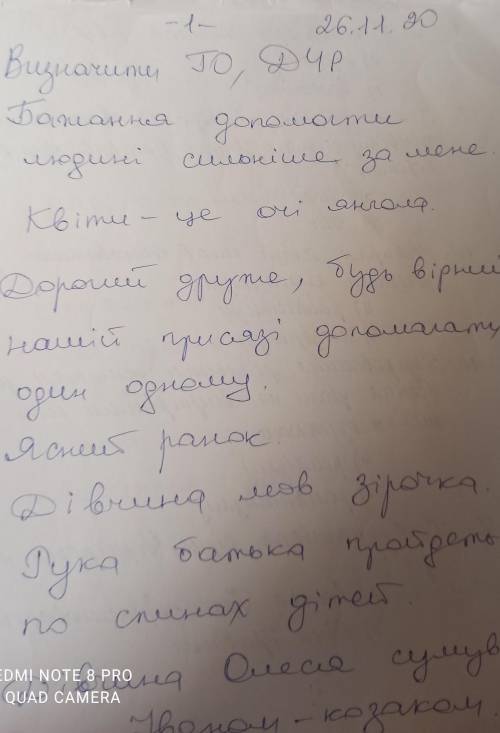 -1-
26.11.20
Визначити ГО, ДЧР
Бажання допомогти
людині сильніше за мене.
Квіти - це очі янгола.
Дорогий друже, будь вірний
нашій присязі допомагати
один одному.
Ясний ранок.
Дівчина мов зірочка.
Рука батька пройдеть
по спинах дітей.
Дівчина Олеся сумув
Іваном - козаком.
REDMI NOTE 8 PRO
QUAD CAMERA